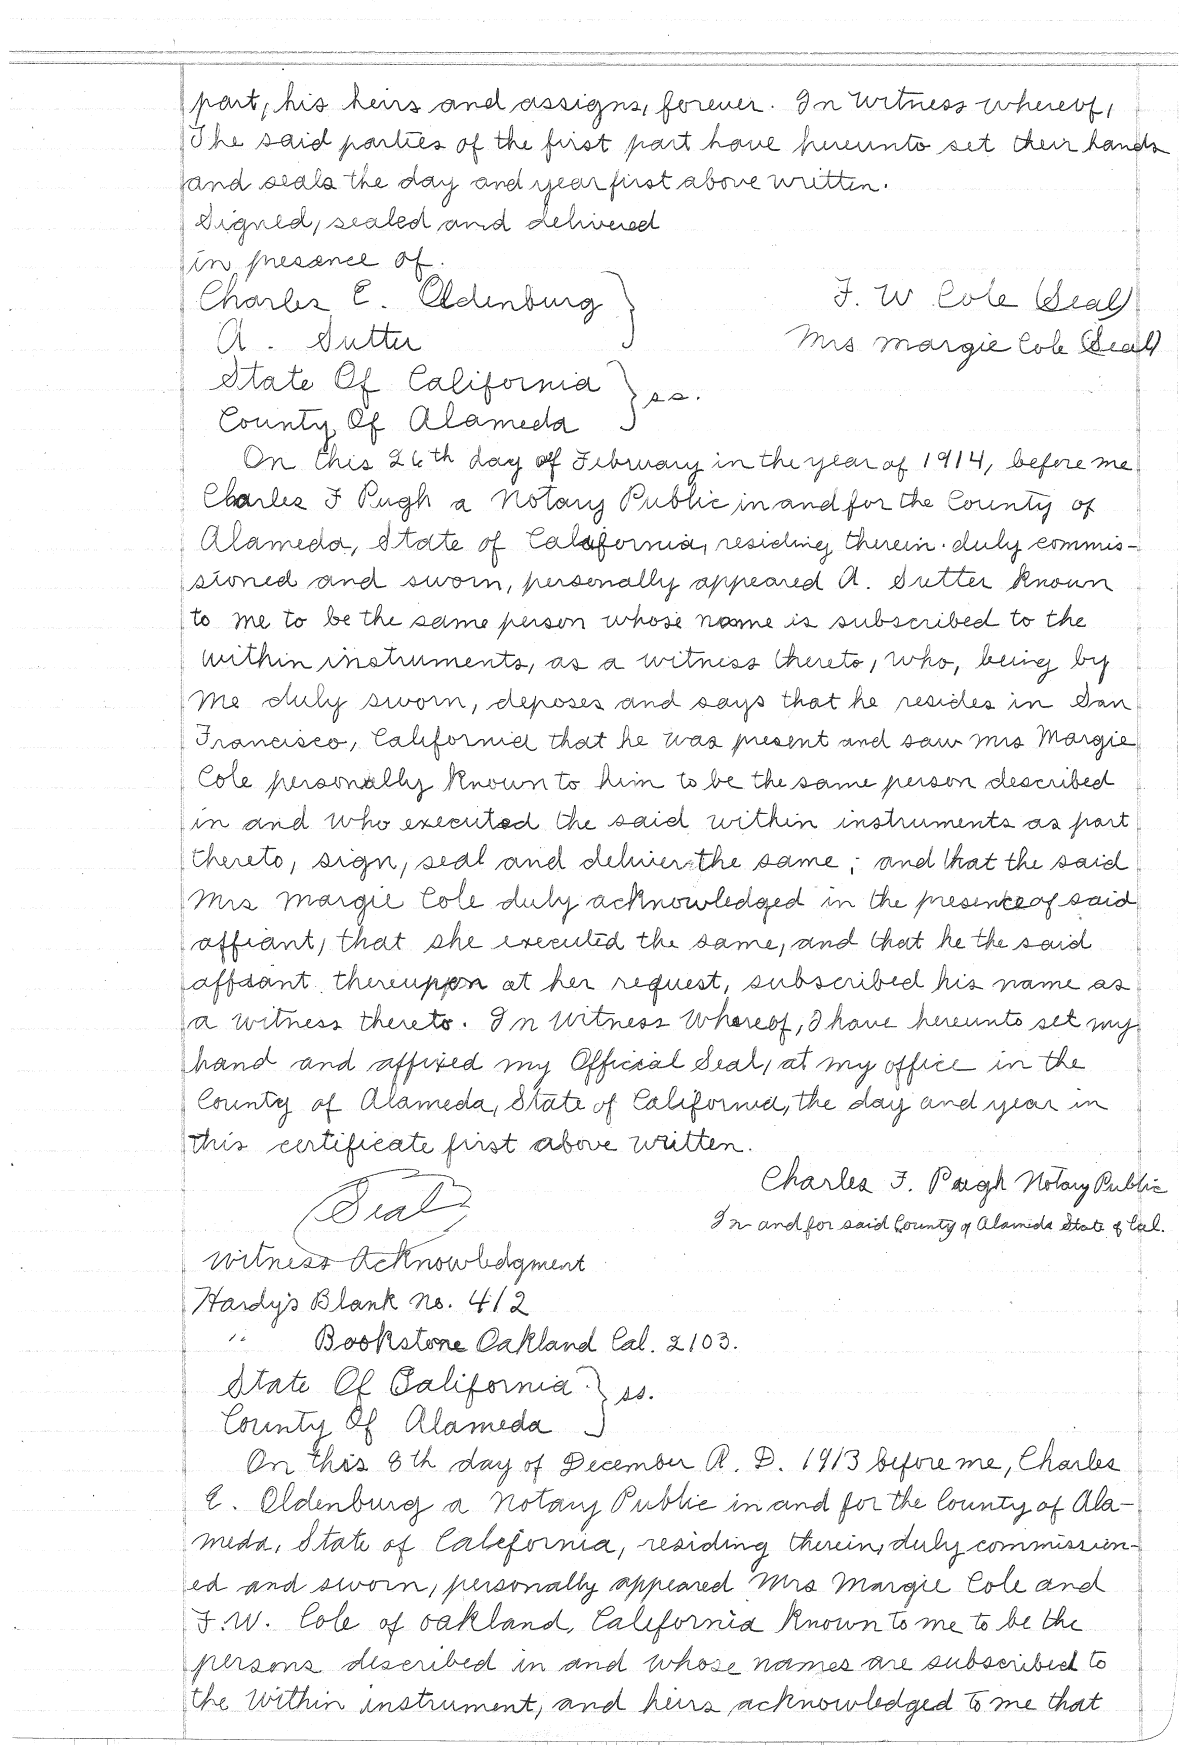 part, his heirs and assigns, forever. In Witness whereof,
The said parties of the first part have hereunto set their hands
and seals the day and year first above written.
Signed, sealed and delivered
in presence of.
Charles E. Oldenburg } F. W Cole (Seal)
A. Sutter Mrs Margie Cole (Seal)
State Of California } ss.
County Of Alameda
On this 26th day of February in the year of 1914, before me
Charles F Pugh a Notary Public in and for the County of
Alameda, State of California, residing therein. duly commis-
sioned and sworn, personally appeared A. Sutter Known
to me to be the same person whose name is subscribed to the
within instruments, as a witness thereto, who, being by
me duly sworn, deposes and says that he resides in San
Francisco, California that he was present and saw Mrs Margie
Cole personally Known to him to be the same person described
in and who executed the said within instruments as part
thereto, sign, seal and deliver the same; and that the said
Mrs Margie Cole duly acknowledged in the presence of said
affiant, that she executed the same, and that he the said
affiant thereupon at her request, subscribed his name as
a witness thereto. In Witness Whereof, I have hereunto set my
hand and affixed my Official Seal, at my office in the
County of Alameda, State of California, the day and year in
this certificate first above written.
Charles F. Pugh Notary Public
(Seal) In and for said County of Alameda State of Cal.
Witness Acknowledgment
Hardy's Blank No. 412
" Bookstore Oakland Cal. 2103.
State Of California } ss.
County Of Alameda
On this 8th day of December A. D. 1913 before me, Charles
E. Oldenburg a Notary Public in and for the County of Ala-
meda, State of California, residing therein, duly commission-
ed and sworn, personally appeared Mrs Margie Cole and
F.W. Cole of Oakland, California Known to me to be the
persons described in and whose names are subscribed to
the Within instrument, and heirs acknowledged to me that